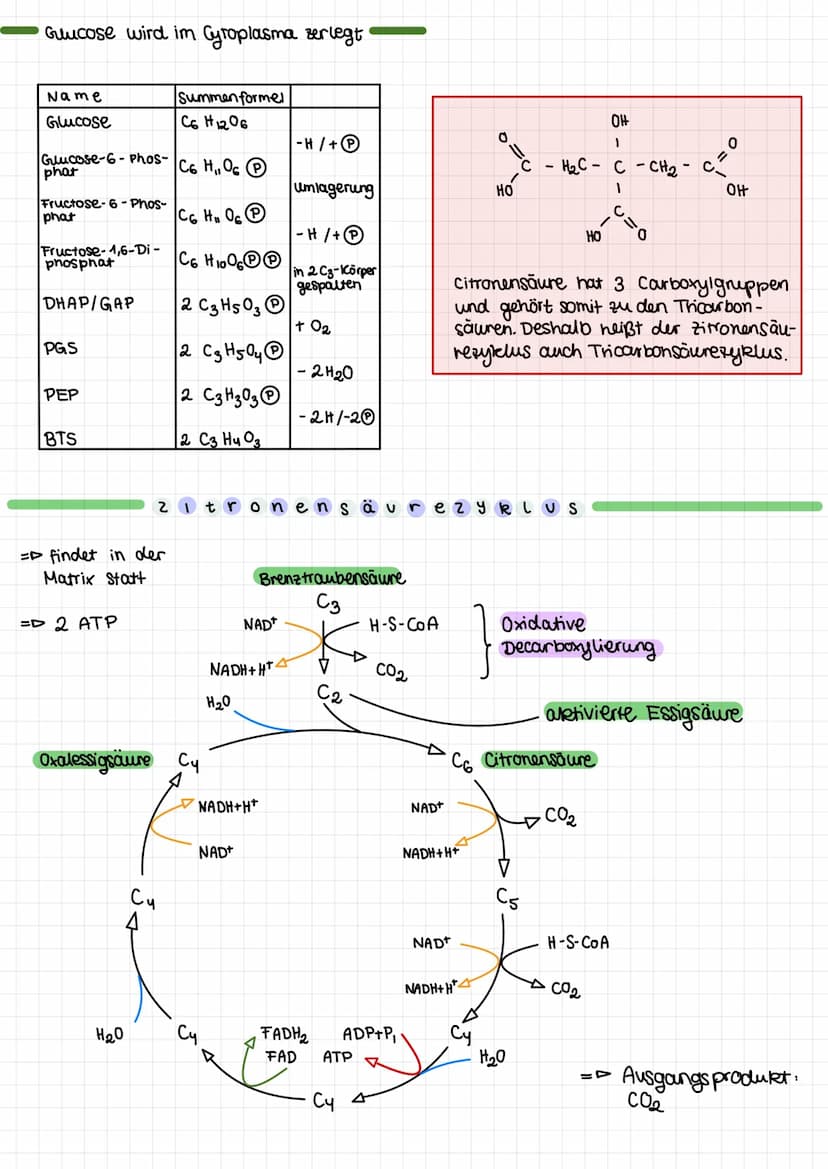 Glucose wird im Cyroplasma zerlegt
Name Summenformel
Glucose C6 H12O6
-H / + Ⓟ
Glucose-6-Phos-
phat C6 H11O6 Ⓟ
umlagerung
Fructose-6-Phos-
phat C6 H11 O6 Ⓟ
-H / + Ⓟ
Fructose-1,6-Di-
phosphat C6 H10O6ⓅⓅ
in 2 C3-Körper
gespalten
DHAP/GAP 2 C3H5O3 Ⓟ
+ O2
PGS 2 C3H5O4 Ⓟ
- 2H2O
PEP 2 C3H3O3 Ⓟ
- 2H/-2Ⓟ
BTS 2 C3 H4 O3
OH
O O
C - H2C - C - CH2 - C
HO OH
C
HO O
Citronensäure hat 3 Carboxylgruppen
und gehört somit zu den Tricarbon-
säuren. Deshalb heißt der zitronensäu-
rezyklus auch Tricarbonsäurezyklus.
Zitronensäurezyklus
=> findet in der
Matrix statt
=> 2 ATP
Brenztraubensäure
C3
NAD+ H-S-CoA
NADH+H+ CO2
Oxidative
Decarboxylierung
H2O C2
aktivierte Essigsäure
Oxalessigsäure C4
C6 Citronensäure
NADH+H+
NAD+
NAD+ CO2
NADH+H+
C4
C5
NAD+ H-S-CoA
NADH+H+ CO2
H2O C4
FADH2
FAD
ADP+Pi
ATP
C4
H2O
C4
=> Ausgangsprodukt:
CO2